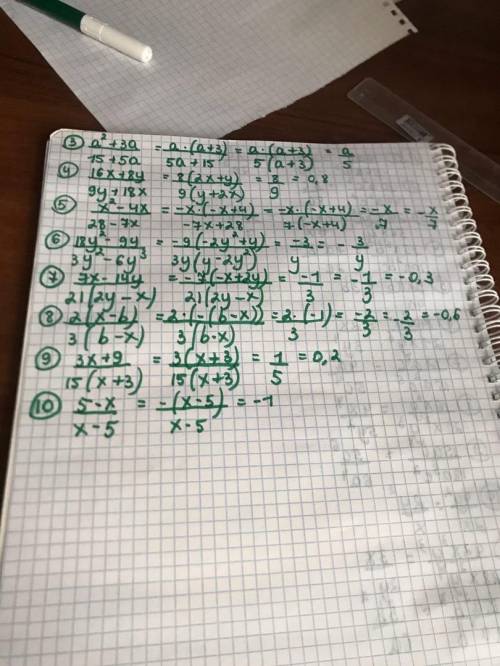 ③ a²+3a / 15+5a = a·(a+3) / 5a+15 = a·(a+3) / 5(a+3) = a / 5
④ 16x+8y / 9y+18x = 8(2x+y) / 9(y+2x) = 8 / 9 = 0,8
⑤ x²-4x / 28-7x = -x·(-x+4) / -7x+28 = -x·(-x+4) / 7(-x+4) = -x / 7 = -x / 7
⑥ 18y²-9y / 3y²-6y³ = -9(-2y²+y) / 3y(y-2y²) = -3 / y = -3 / y
⑦ 7x-14y / 21(2y-x) = -7(-x+2y) / 21(2y-x) = -1 / 3 = -1 / 3 = -0,3
⑧ 2(x-b) / 3(b-x) = 2·(-(b-x)) / 3(b-x) = 2·(-1) / 3 = -2 / 3 = -2 / 3 = -0,6
⑨ 3x+9 / 15(x+3) = 3(x+3) / 15(x+3) = 1 / 5 = 0,2
⑩ 5-x / x-5 = -(x-5) / x-5 = -1